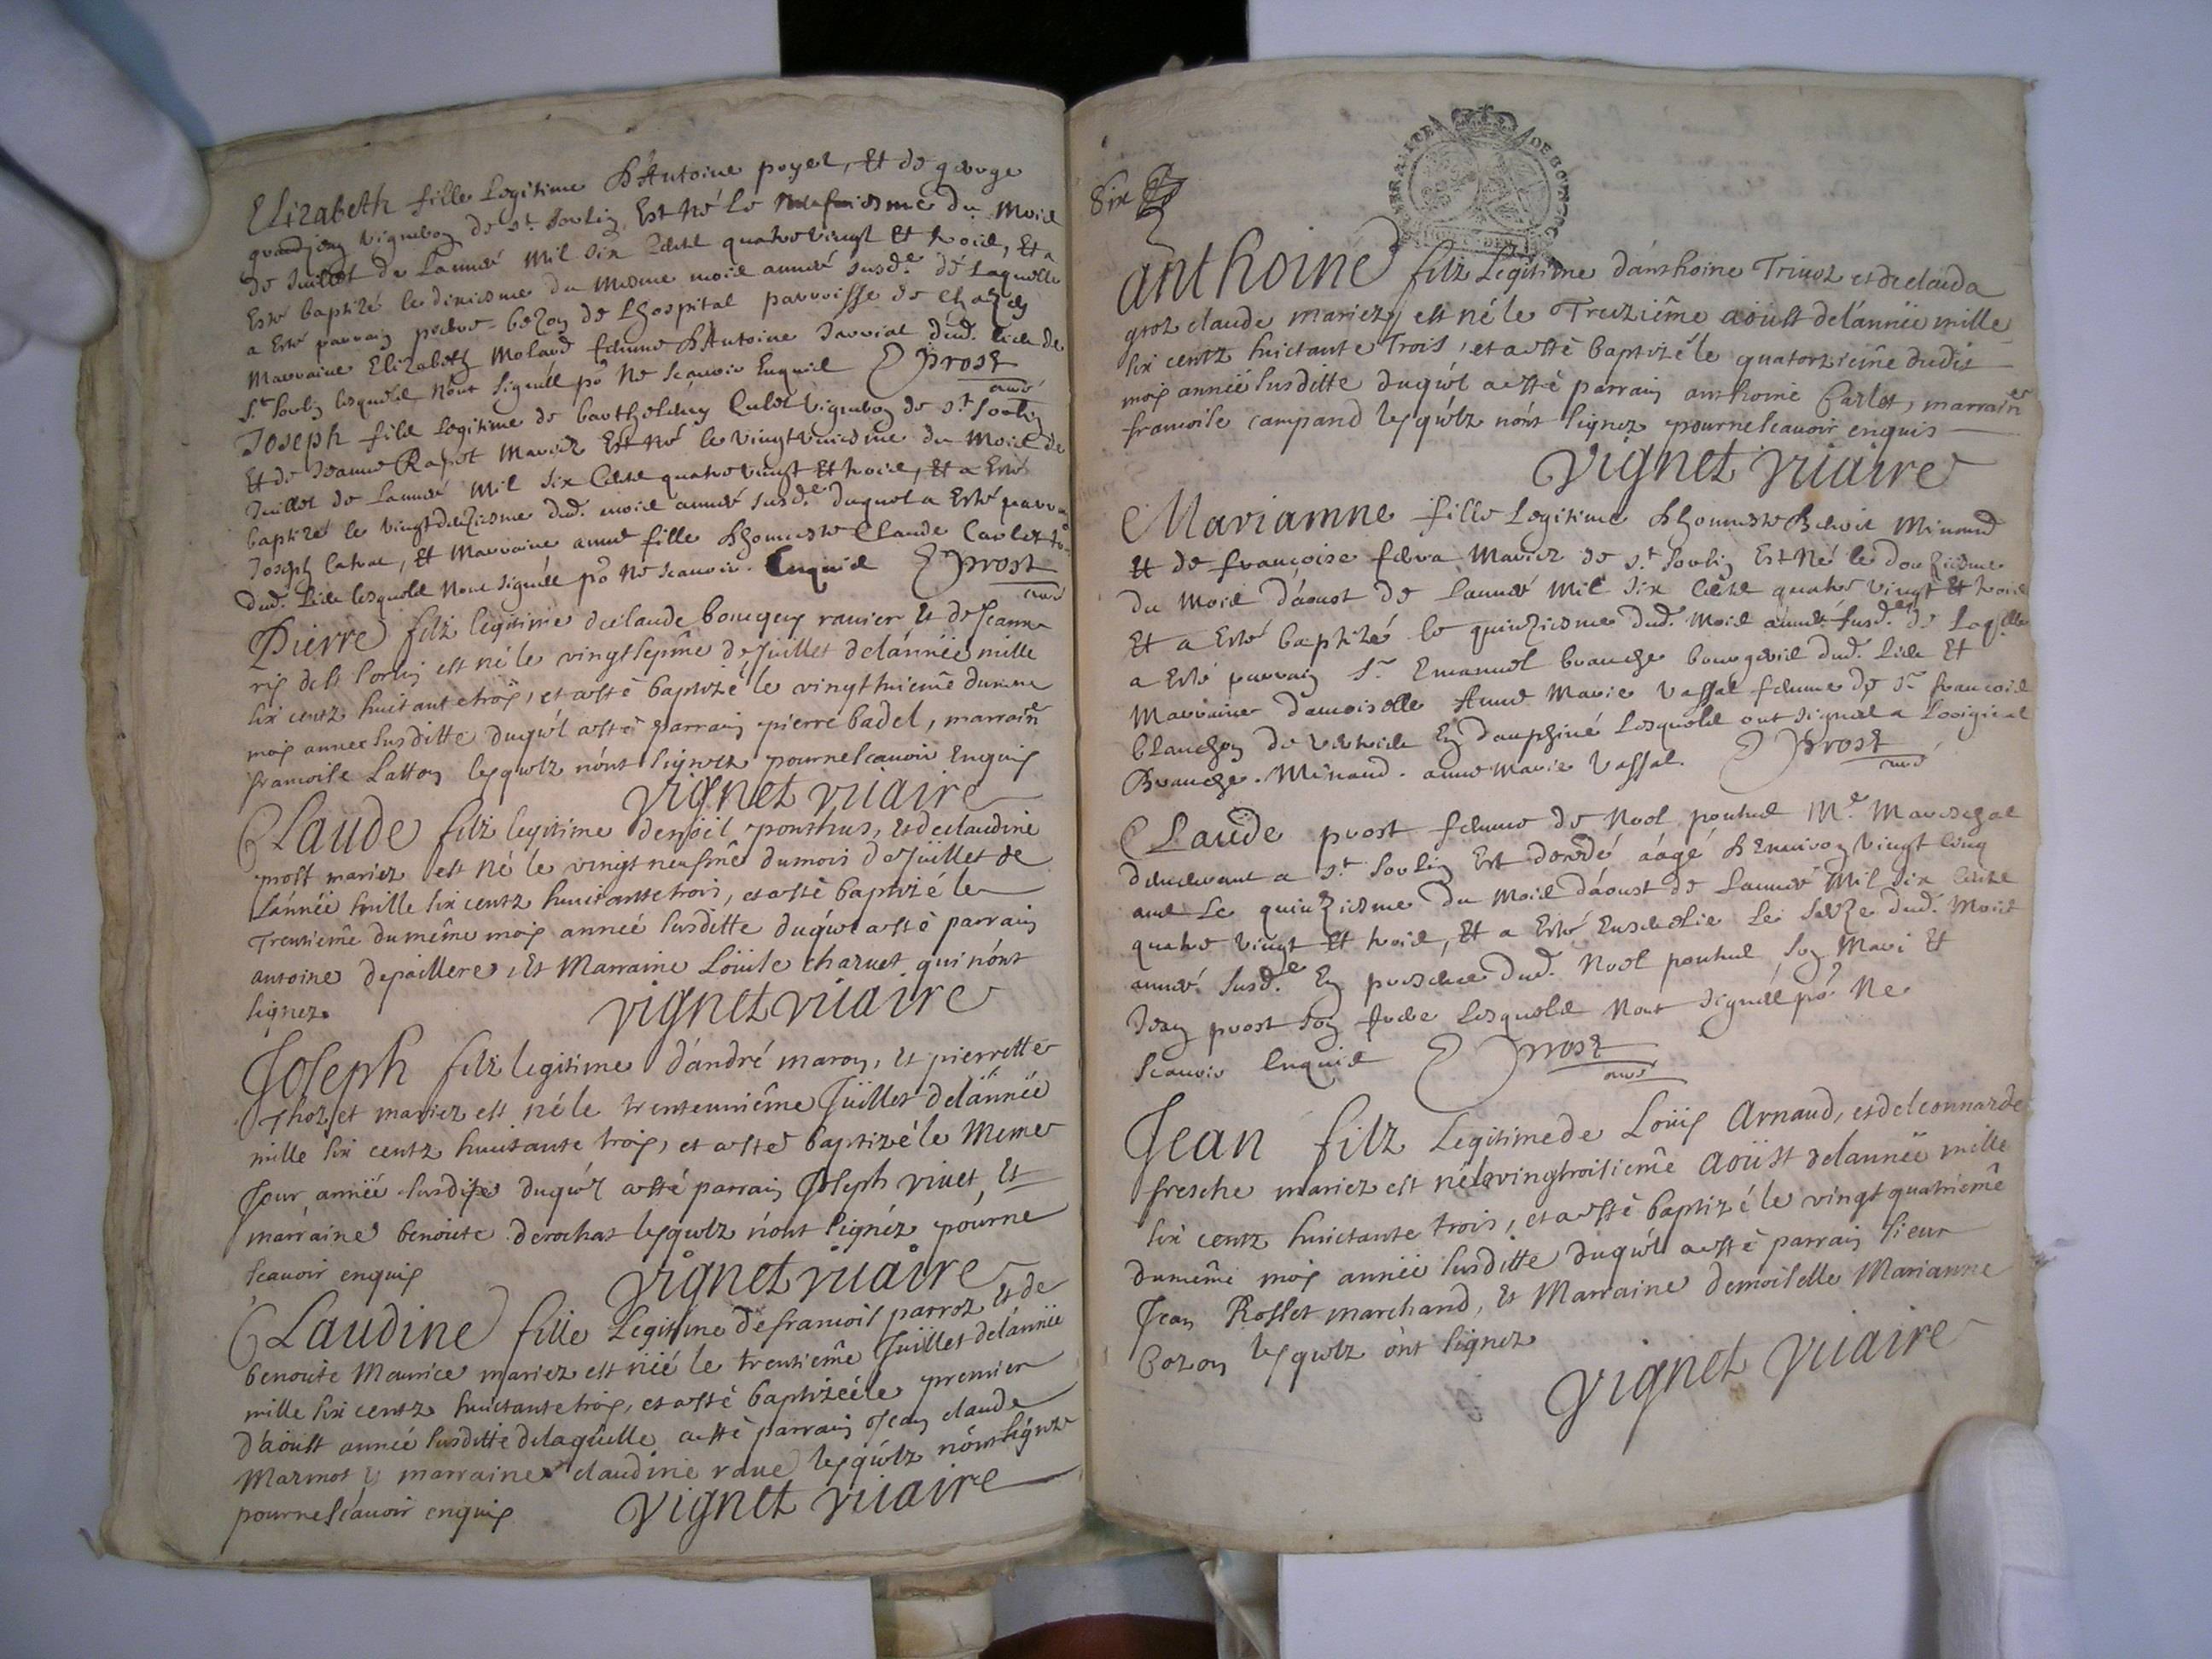 Elizabeth fille Legitime d'Antoine poyet, Et de george
grandjean vigneron de st. sorlin Est Né le neufviesme du Mois
de Juillet de Lannée Mil six Cents quatre vingt Et trois, Et a
Esté baptizé le dixiesme du Mesme mois année susde. de Laquelle
a Esté parrain pierre bozon de Lhospital parroisse de
Marraine Elizabeth Molard femme d'Antoine dud. Lieu de
St. Sorlin lesquels Nont Signés por Ne sçavoir Enquis Prost
curé
Joseph fils Legitime de barthelemy vigneron de st. Sorlin
Et de Jeanne Rapet Mariez Est Né le vingtuniesme du Mois de
Juillet de Lannée Mil six Cents quatre vingt Et trois, Et a Esté
baptizé le vingtdeuziesme dud. mois année susde. duquel a Esté parrain
Joseph, Et Marraine anne fille d'honneste Claude Carlet
dud. Lieu lesquels Nont signés por Ne scavoir. Enquis Prost
curé
Pierre filz legitime de claude et de Jeanne
de st sorlin est né le vingtsepme de Juillet delánnée mille
six centz huitante trois, et a esté baptizé le vingthuicme dumeme
mois annee susditte duqu'el a esté parrain pierre badel, marraine
francoise Latton lesqu'elz nónt signez pournescauoir Enquis
vignet viaire
Claude filz legitime denoël ponthus, et declaudine
prost mariez est né le vingtneufme dumois de Juillet de
lánnée mille six centz huictante trois, et a esté baptizé le
Trentieme dumême mois année susditte duqu'el a esté parrain
antoine depaillere, Et Marraine Loüise charuet qui nónt
signez.
vignet viaire
Joseph filz legitime dándré maron, et pierrette
mariez est né le trenteunième Juillet delánnée
mille six centz huictante trois, et a esté baptizé le Meme
Jour année susditte duqu'el a esté parrain Joseph viuet, Et
marraine benoite derochas lesquelz nónt signéz pourne
scauoir enquis
vignet viaire
Claudine fille Legitime de francois parroz et de
benoite Maurice mariez est née le trentieme Juillet delánnée
mille six centz huictante trois, et a esté baptizée le premier
d'aoust année susditte delaquelle a esté parrain Jean claude
Marmot & marraine claudine raue lesqu'elz nónt signez
pournescauoir enquis
vignet viaire
Six
anthoine filz Legitime dánthoine Triuoz et declauda
groz claude mariez est né le Treizième aoust delánnée mille
six centz huictante Trois, et a esté baptizé le quatorzieme dudit
mois année susditte duqu'el a esté parrain anthoine Carlet, marraine
francoise campand lesqu'elz nónt signez pournescauoir enquis
vignet viaire
Marianne fille Legitime d'honneste benoit Minand
Et de françoise Mariez de st. Sorlin Est Né le douziesme
du Mois dáoust de Lannée Mil six Cents quatre vingt Et trois
Et a Esté baptizé le quinziesme dud. Mois année susde. de Laqelle
a Esté parrain Sr. Emanuel branche bourgeois dud. Lieu Et
Marraine damoiselle Anne Marie vassal femme de Sr francois
blanchon de En dauphiné Lesquels ont signés a Loriginal
Branche. Minand. anne Marie vassal. Prost
curé
Claude prost femme de Noel ponthus Me. Mareschal
demeurant a st. Sorlin Est decedé aâgé d'Environ vingt cinq
ans Le quinziesme du Mois dáoust de Lannée Mil six Cents
quatre vingt Et trois, Et a Esté Ensevelie Le Seize dud. Mois
année susde. En presence dud. Noel ponthus son Mari Et
Jean prost son frere Lesquels Nont signés por Ne
scauoir Enquis Prost
curé
Jean filz Legitime de Loüis Arnaud, et deleonnarde
fresche mariez est né le vingtroisieme aoüst delannée mille
six centz huictante trois, et a esté baptizé le vingt quatrieme
dumême mois année susditte duqu'el a esté parrain sieur
Jean Rosset marchand, Et Marraine demoiselle Marianne
bozon lesquelz ónt signez
vignet viaire